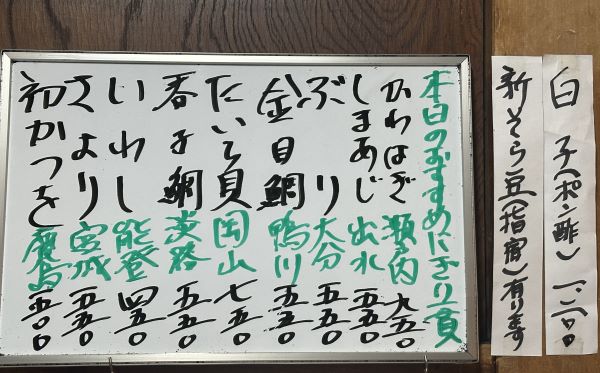 白子(ポン酢) 一二〇〇
新そら豆(指宿)有ります
本日のおすすめにぎり一貫
かわはぎ 瀬戸内 九五〇
しまあじ 出水 五五〇
ぶり 大分 五五〇
金目鯛 鴨川 五五〇
たいら貝 岡山 七五〇
春子鯛 淡路 五五〇
いわし 能登 四五〇
さより 宮城 五五〇
初かつを 鹿島 五〇〇